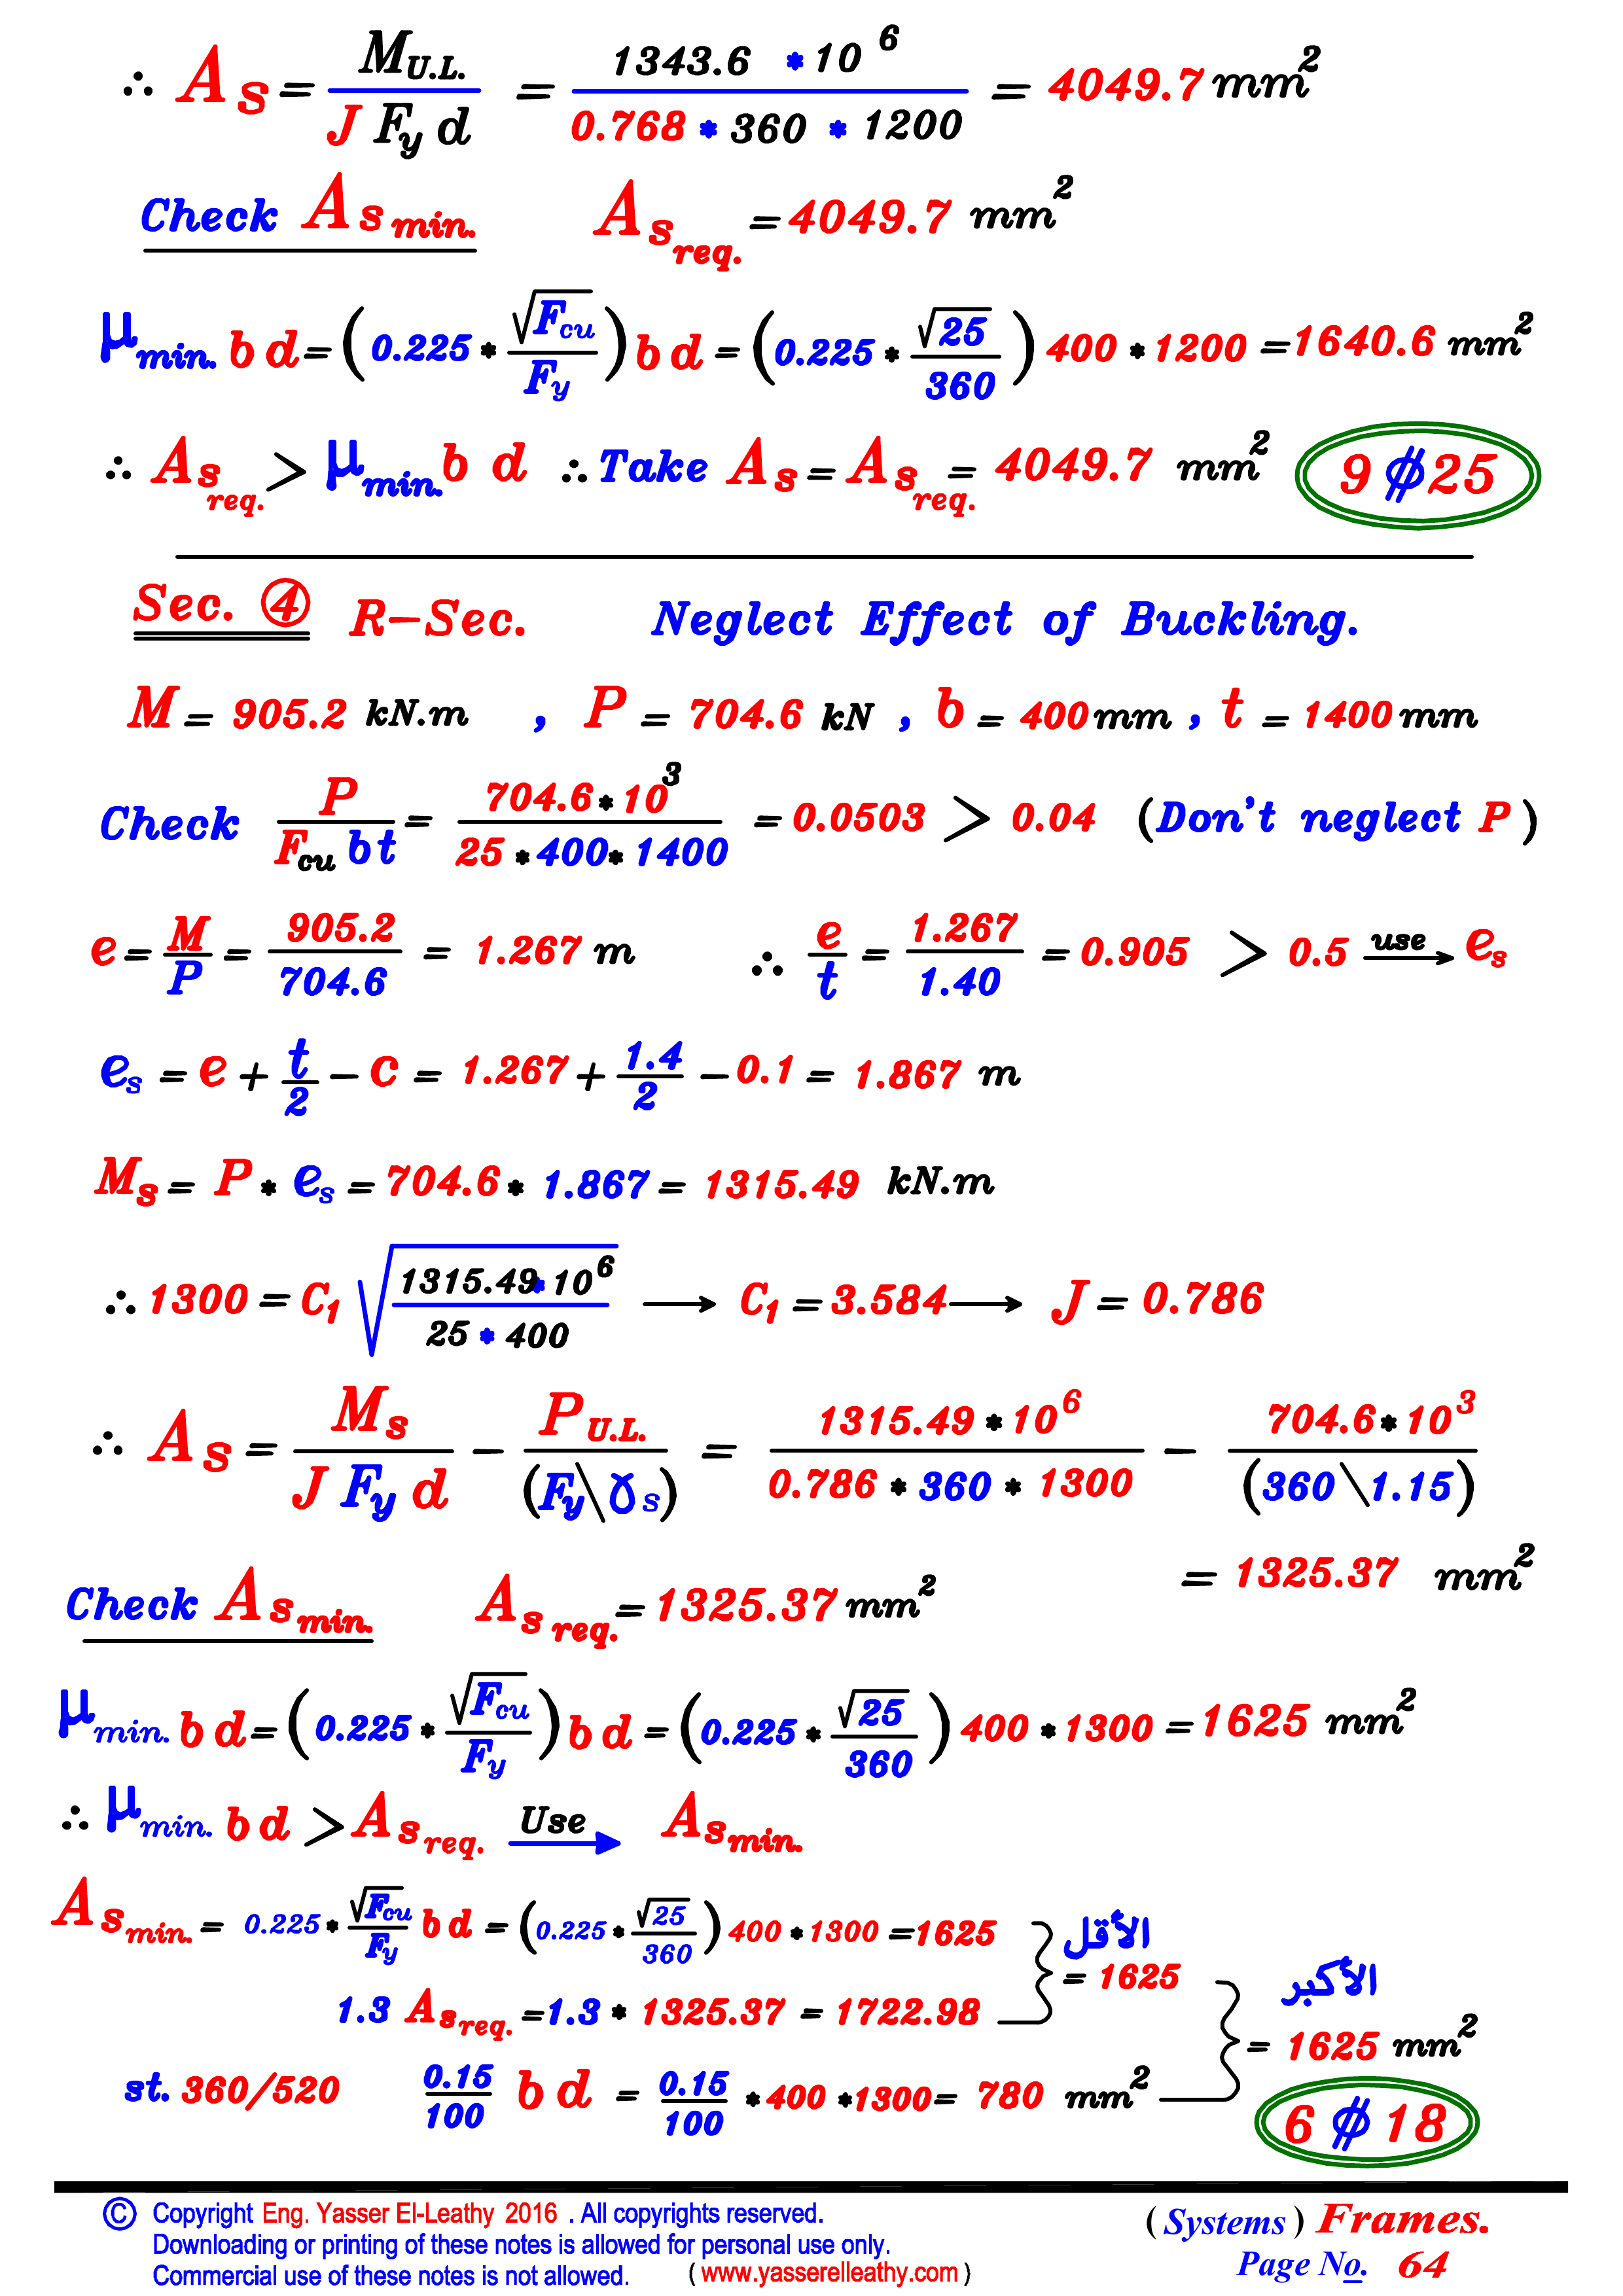 ∴ As = M_U.L. / (J Fy d) = 1343.6 * 10^6 / (0.768 * 360 * 1200) = 4049.7 mm^2
Check As min. As req. = 4049.7 mm^2
μ min. b d = (0.225 * √Fcu / Fy) b d = (0.225 * √25 / 360) 400 * 1200 = 1640.6 mm^2
∴ As req. > μ min. b d ∴ Take As = As req. = 4049.7 mm^2 9 ⌀ 25
Sec. ④ R-Sec. Neglect Effect of Buckling.
M = 905.2 kN.m , P = 704.6 kN , b = 400 mm , t = 1400 mm
Check P / (Fcu b t) = 704.6 * 10^3 / (25 * 400 * 1400) = 0.0503 > 0.04 (Don't neglect P)
e = M / P = 905.2 / 704.6 = 1.267 m ∴ e / t = 1.267 / 1.40 = 0.905 > 0.5 use → es
es = e + t / 2 - c = 1.267 + 1.4 / 2 - 0.1 = 1.867 m
Ms = P * es = 704.6 * 1.867 = 1315.49 kN.m
∴ 1300 = C1 √(1315.49 * 10^6 / (25 * 400)) → C1 = 3.584 → J = 0.786
∴ As = Ms / (J Fy d) - P_U.L. / (Fy \ γs) = 1315.49 * 10^6 / (0.786 * 360 * 1300) - 704.6 * 10^3 / (360 \ 1.15)
= 1325.37 mm^2
Check As min. As req. = 1325.37 mm^2
μ min. b d = (0.225 * √Fcu / Fy) b d = (0.225 * √25 / 360) 400 * 1300 = 1625 mm^2
∴ μ min. b d > As req. Use → As min.
As min. = 0.225 * √Fcu / Fy b d = (0.225 * √25 / 360) 400 * 1300 = 1625
الأقل
= 1625
1.3 As req. = 1.3 * 1325.37 = 1722.98
الأكبر
= 1625 mm^2
st. 360/520 0.15 / 100 b d = 0.15 / 100 * 400 * 1300 = 780 mm^2
6 ⌀ 18
© Copyright Eng. Yasser El-Leathy 2016 . All copyrights reserved.
Downloading or printing of these notes is allowed for personal use only.
Commercial use of these notes is not allowed. ( www.yasserelleathy.com )
( Systems ) Frames.
Page No. 64